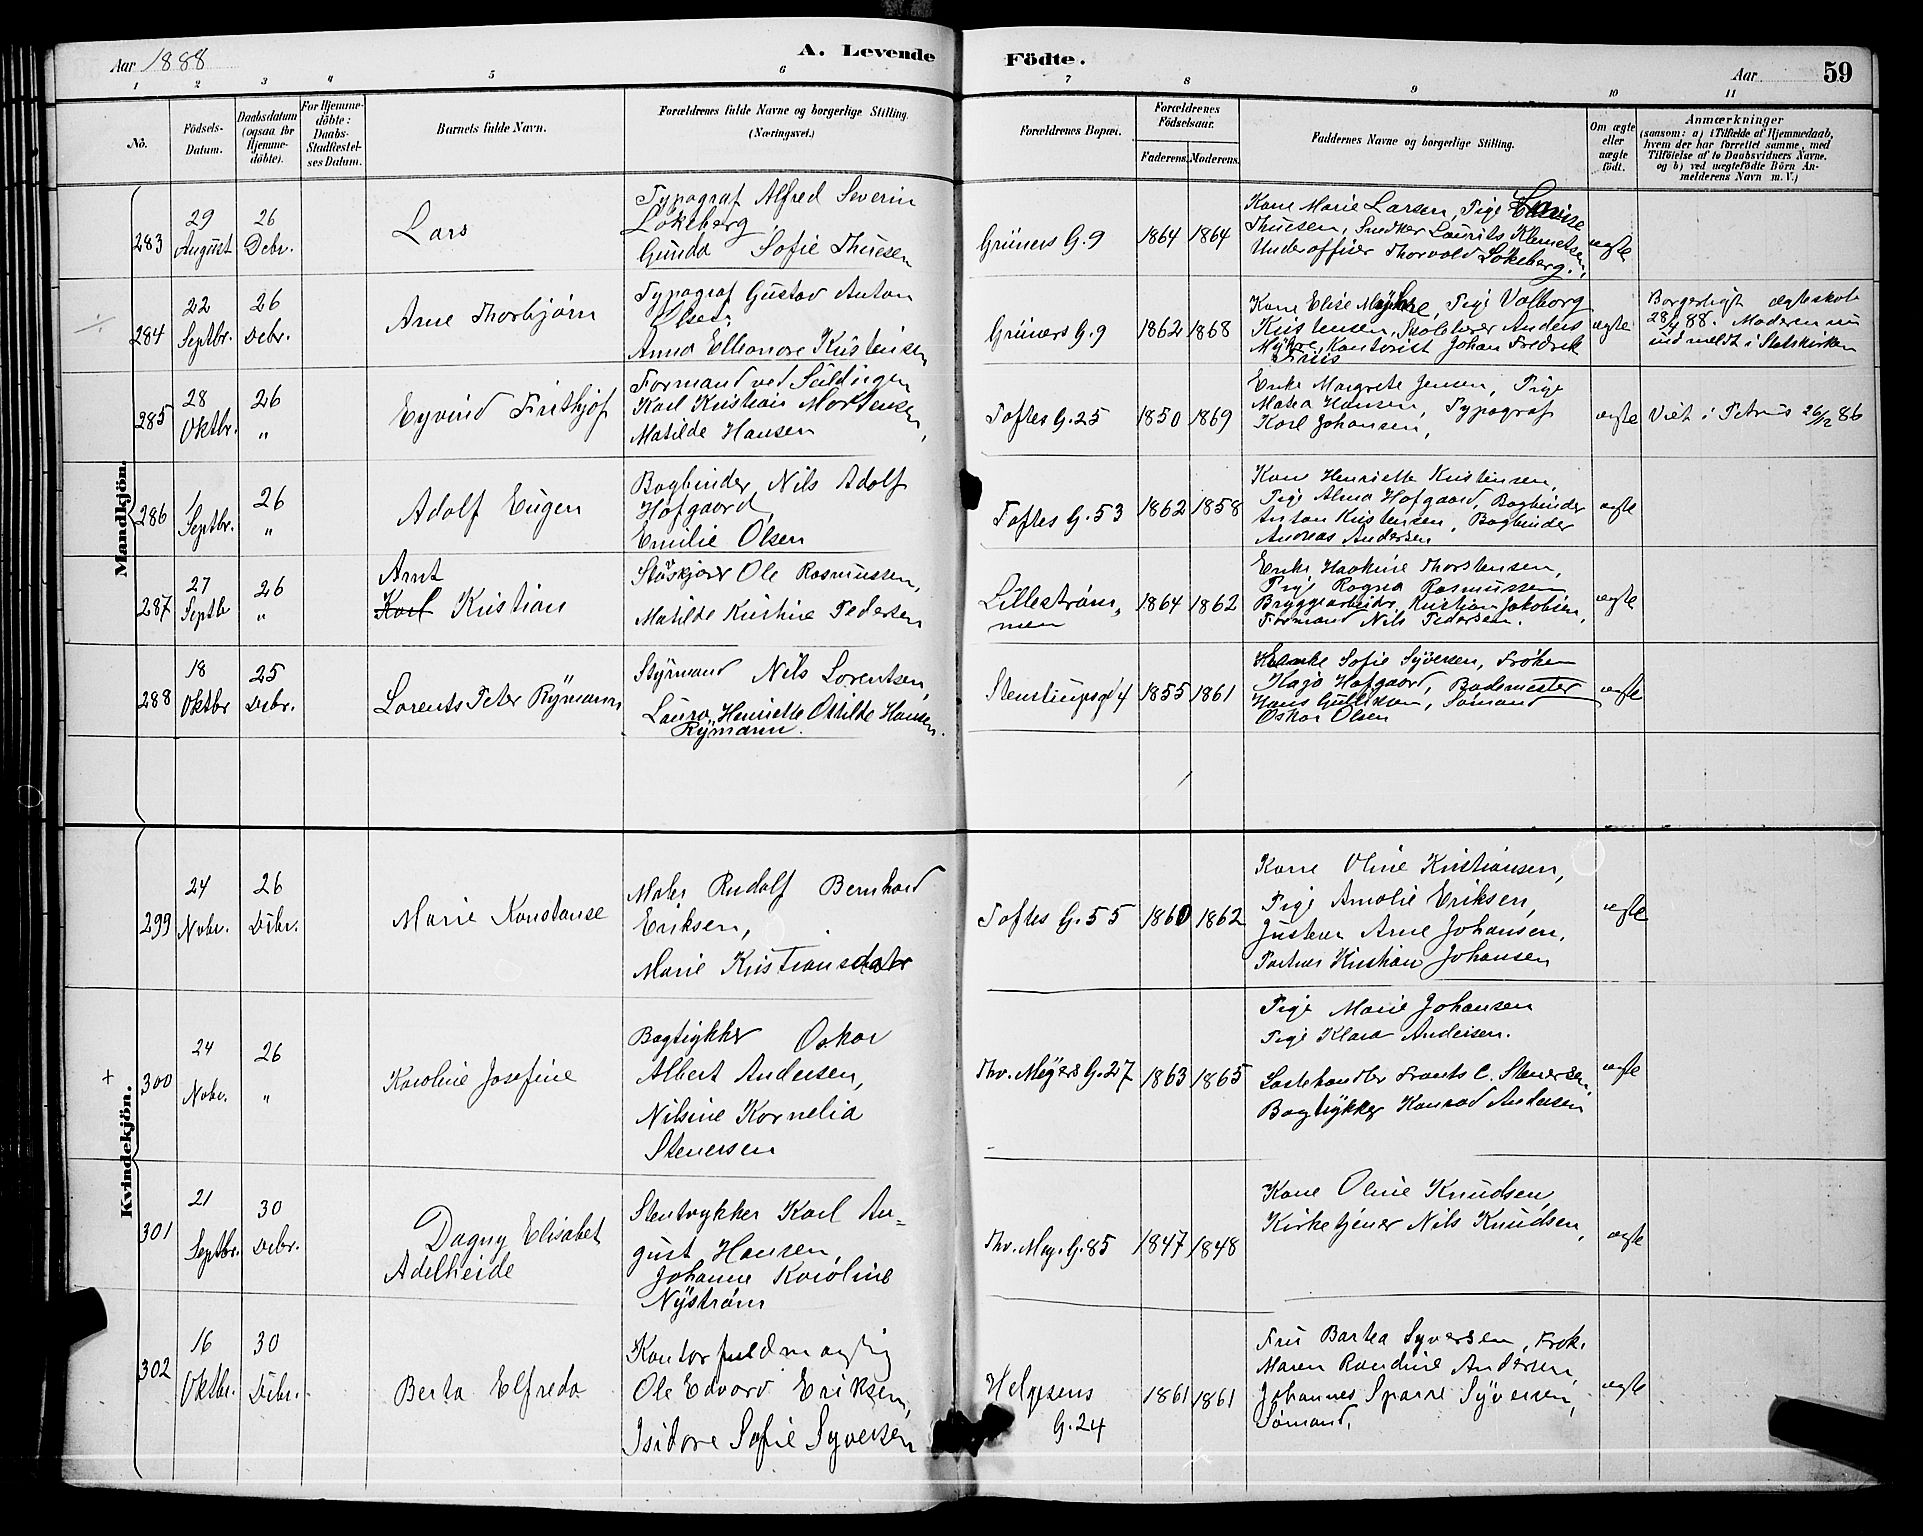 Aar 1888
A. Levende
Födte.
Aar
59
1 2 3 4 5 6 7 8 9 10 11
No.
Födsels-
Datum.
Daabsdatum
(ogsaa for
Hjemme-
döbte).
For Hjemme-
döbte:
Daabs-
Stadfæstel-
ses Datum.
Barnets fulde Navn.
Forældrenes fulde Navne og borgerlige Stilling.
(Næringsvei.)
Forældrenes Bopæl.
Forældrenes
Födselsaar.
Faderens. Moderens.
Faddernes Navne og borgerlige Stilling.
Om ægte
eller
uægte
födt.
Anmærkninger
(saasom: a) i Tilfælde af Hjemmedaab,
hvem der har forrettet samme, med
Tilföielse af to Daabsvidners Navne,
og b) ved uægtefödte Börn An-
melderens Navn m. V.)
Mandkjön.
283
29
August
26
Debr.
Lars
Typograf Alfred Severin
Lökeberg,
Gunda Sofie Thuesen
Grüners G. 9
1864
1864
Kone Marie Larsen, Pige Lovise
Thuesen, Snedker Laurits Klemetsen,
Underofficer Thorvald Lökeberg.
ægte
284
22
Septbr.
26
Debr.
Arne Thorbjörn
Typograf Gustav Anton
Olsen,
Anna Elleonore Kristensen
Grüners G. 9
1862
1868
Kone Elise Myhre, Pige Valborg
Kristensen, Skolelærer Anders
Myhre, Kontorist Johan Fredrik
Friis
ægte
Borgerligt ægteskab
28/4 88. Moderen nu
indmeldt i Statskirken
285
28
Oktbr.
26
"
Eyvind Fritthjof
Formand ved
Karl Kristian Mortensen,
Matilde Hansen
Toftes G. 25
1850
1869
Enke Margrete Jensen, Pige
Matea Hansen, Typograf
Karl Johansen,
ægte
Viet i Petrus 26/12 86
286
1
Septbr.
26
"
Adolf Eugen
Bogbinder Nils Adolf
Hofgaard,
Emilie Olsen
Toftes G. 53
1862
1858
Kone Henriette Kristensen,
Pige Alma Hofgaard, Bogbinder
Anton Kristensen, Bogbinder
Andreas Andersen
ægte
287
27
Septb
26
"
Arnt
Karl Kristian
Ole Rasmussen,
Matilde Kristine Pedersen
Lilleström,
men
1864
1862
Enke Thorstensen,
Pige Ragna Rasmussen
Bryggearbeider Kristian Jakobsen,
Formand Nils Pedersen.
ægte
288
18
Oktbr
25
Debr.
Lorents Peter Rÿmann
Styrmand Nils Lorentsen,
Laura Henriette Otilde Hansen
Rÿmann.
Stenstrupsgd 4
1855
1861
Enke Sofie Syversen, Fröken
Kaja Hofgaard, Bademester
Hans Gulliksen, Sömand
Oskar Olsen
ægte
Kvindekjön.
299
24
Nobr.
26
Debr.
Marie Konstanse
Maler Rudolf Bernhard
Eriksen,
Marie Kristiansdatr
Toftes G. 55
1860
1862
Kone Oline Kristiansen,
Pige Amalie Eriksen,
Arne Johansen,
Kristian Johansen
ægte
300
24
Nobr.
26
"
Karoline Josefine
Bogtrykker Oskar
Albert Andersen,
Nilsine Kornelia
Stenersen
Thv. Meyers G. 27
1863
1865
Pige Marie Johansen
Pige Klara Andersen.
Frants C. Stenersen,
Bogtrykker Konrad Andersen
ægte
301
21
Septbr.
30
Debr.
Dagny Elisabet
Adelheide
Stentrykker Karl Au-
gust Hansen,
Johanne Karoline
Nyström
Thv. Mey. G. 85
1847
1848
Kone Oline Knudsen,
Kirketjener Nils Knudsen,
ægte
302
16
Oktbr.
30
Debr.
Berta Elfreda
Kontorfuldmægtig
Ole Edvard Eriksen,
Isidore Sofie Syversen
Helgesens
G. 24
1861
1861
Fru Bartea Syversen, Frök.
Maren Randine Andersen,
Johannes Sparre Syversen,
Sömand,
ægte